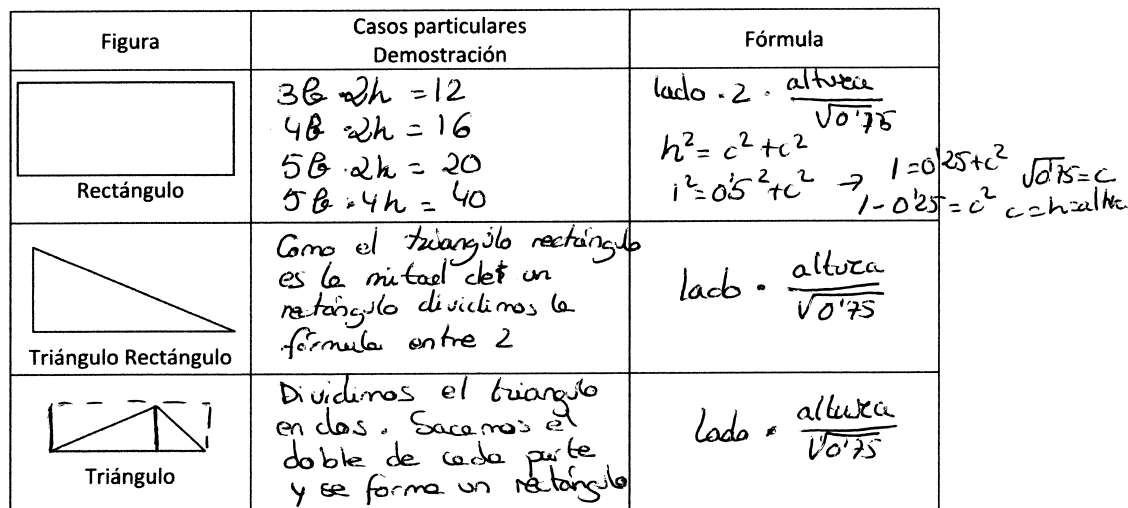 Figura
Casos particulares
Demostración
Fórmula
Rectángulo
3b · 2h = 12
4b · 2h = 16
5b · 2h = 20
5b · 4h = 40
lado · 2 · altura / √0'75
h² = c² + c²
1² = 0'5² + c² → 1 = 0'25 + c² √0'75 = c
1 - 0'25 = c² c = h = altura
Triángulo Rectángulo
Como el triangulo rectángulo
es la mitad de un
rectángulo dividimos la
fórmula entre 2
lado · altura / √0'75
Triángulo
Dividimos el triangulo
en dos. Sacamos el
doble de cada parte
y se forma un rectángulo
lado · altura / √0'75